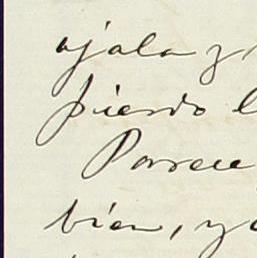 ojala y
pierdo l
Parece
bien, y